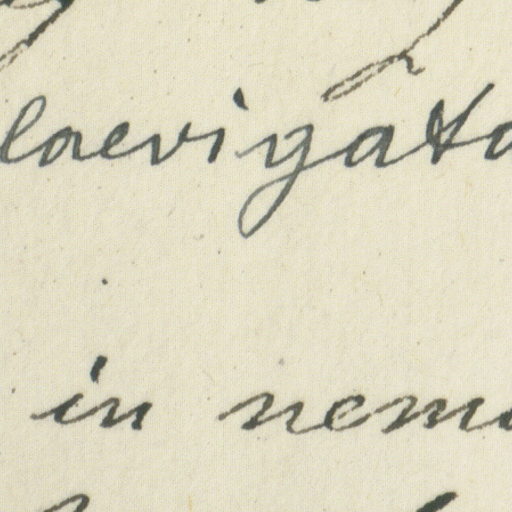 laevigata
in nemo